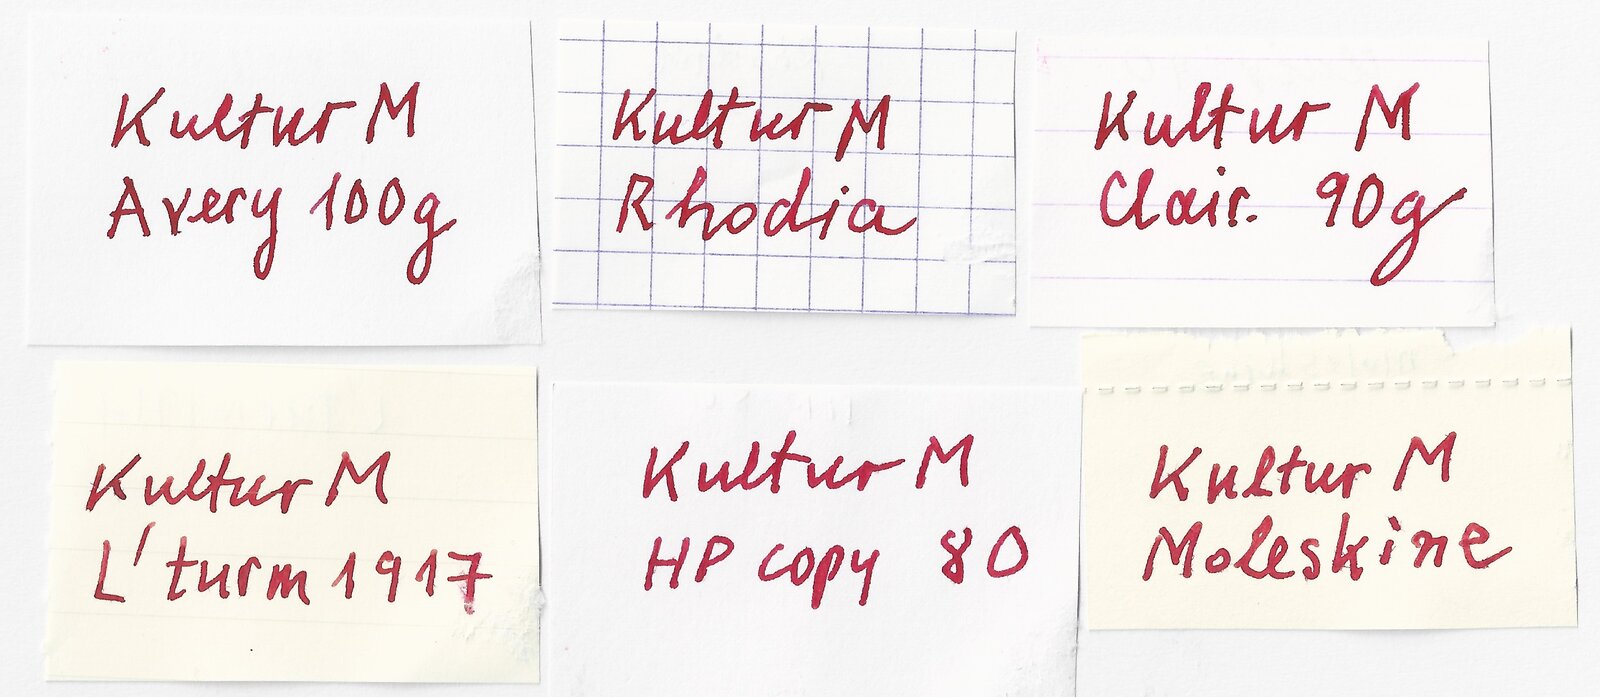 Kultur M
Avery 100g
Kultur M
Rhodia
Kultur M
Clair. 90g
Kultur M
L'turm 1917
Kultur M
HP copy 80
Kultur M
Moleskine